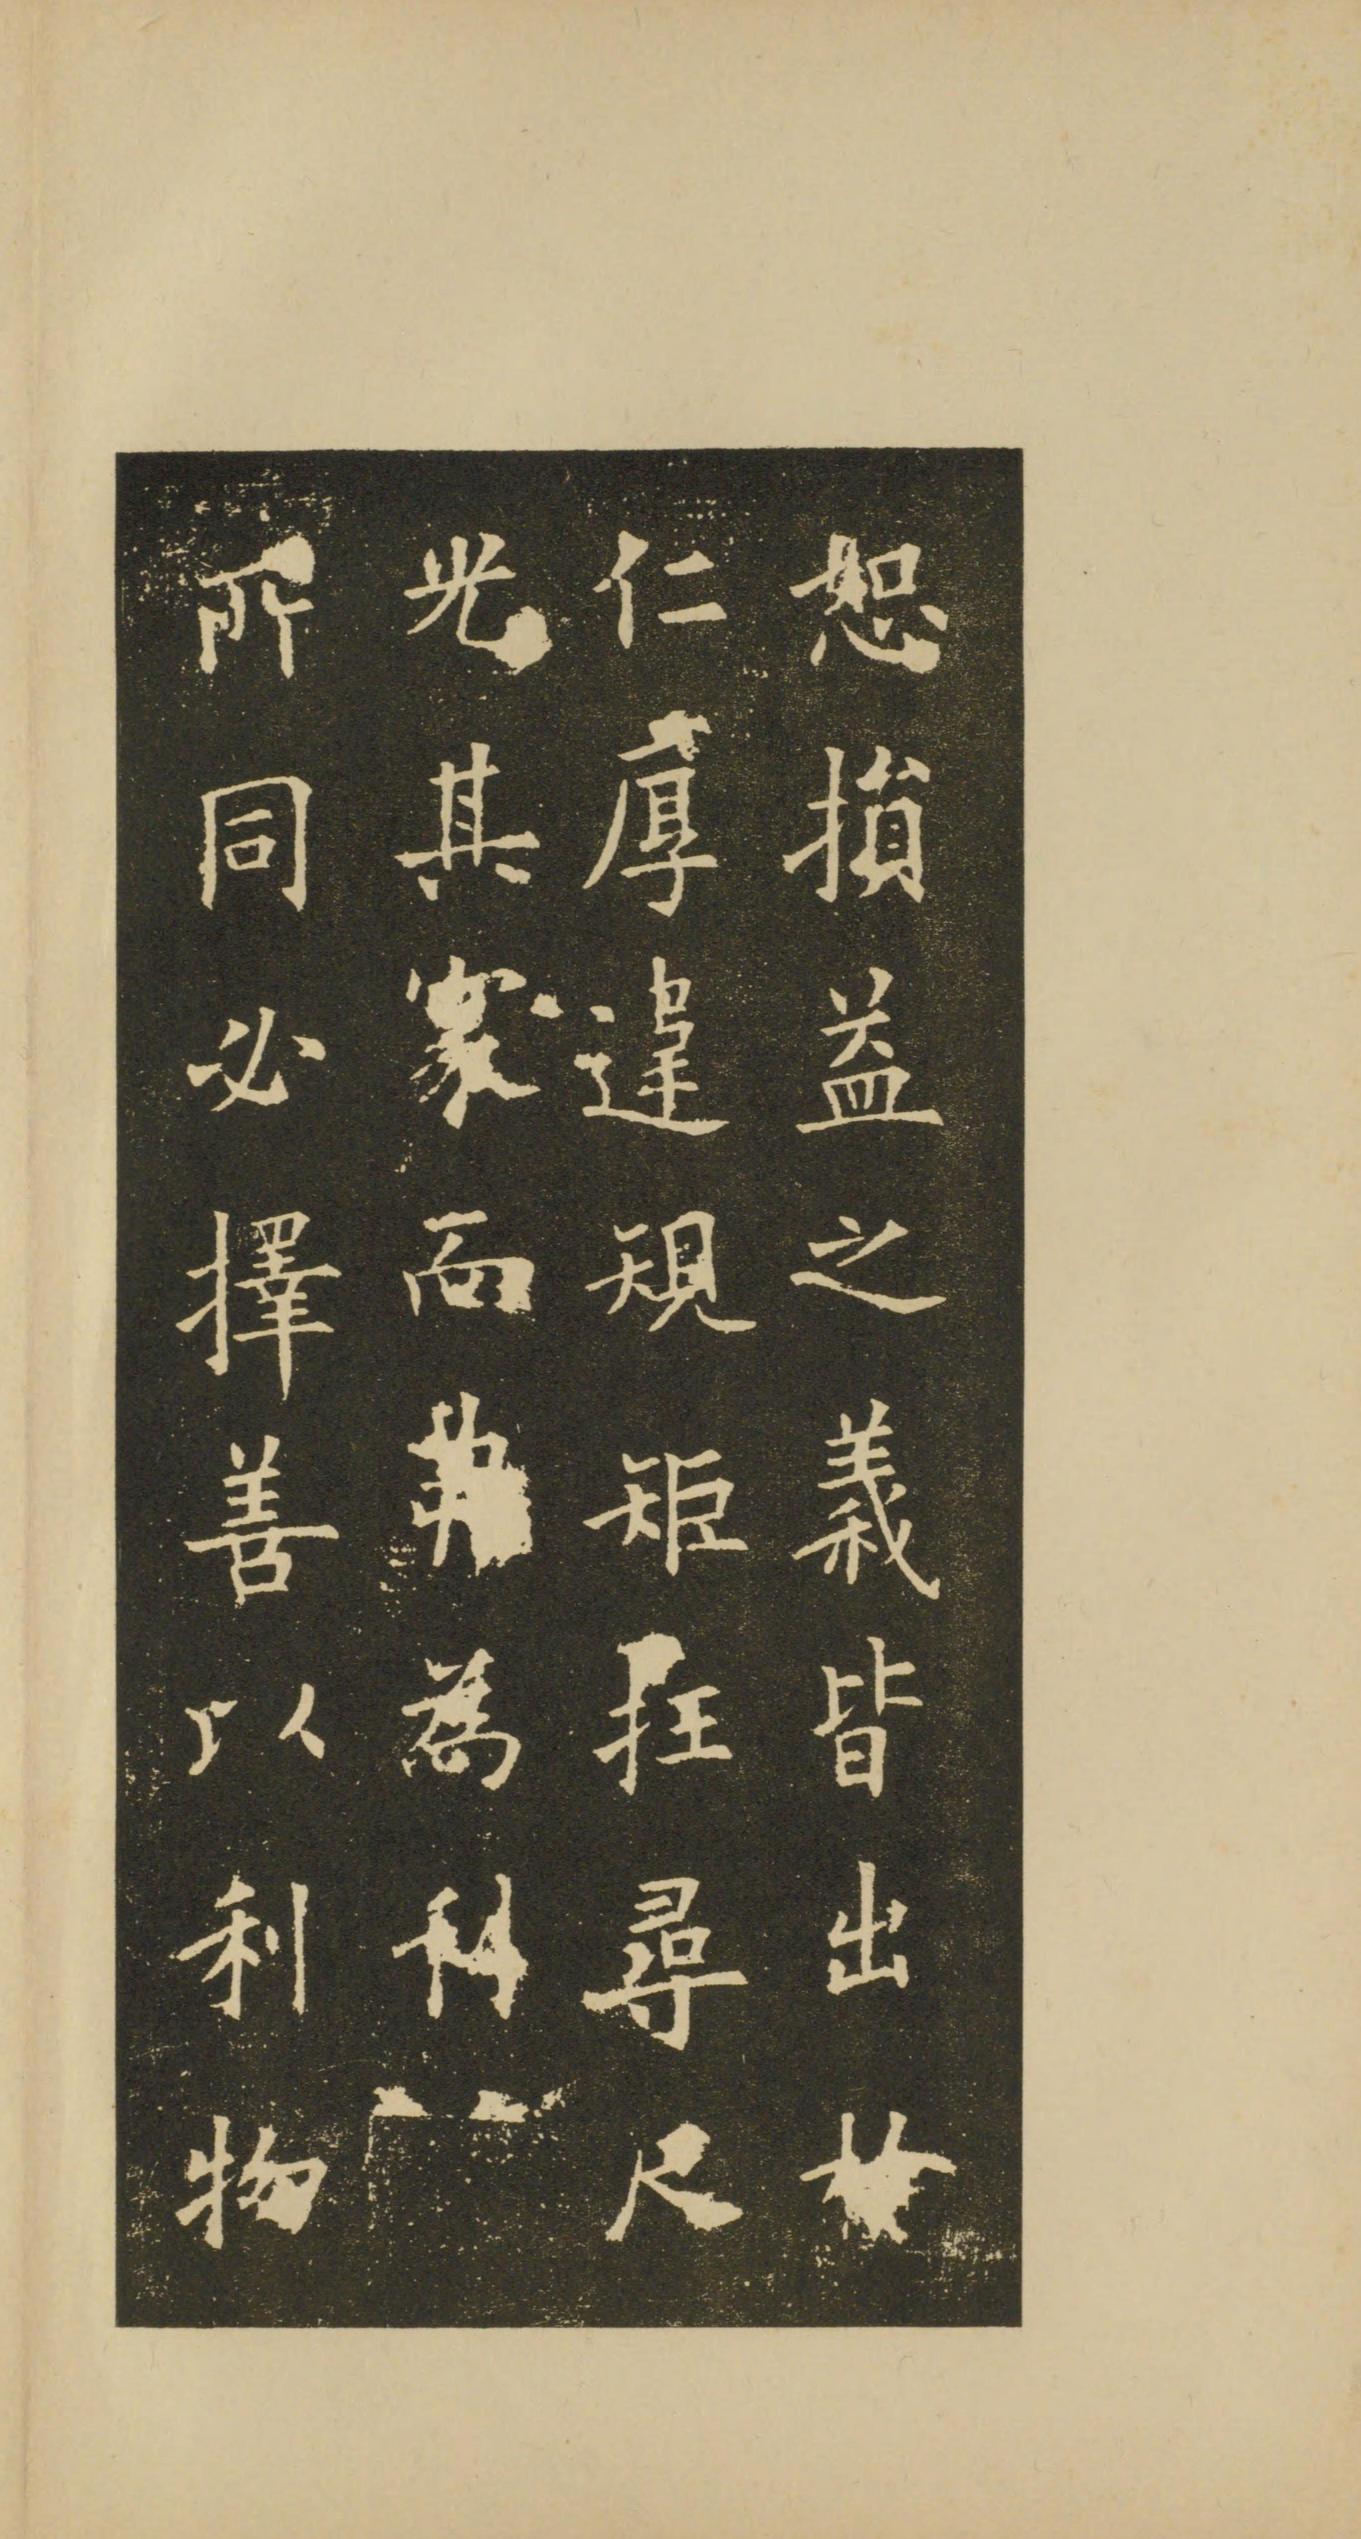 恕損益之義皆出於
仁厚違規矩抂尋尺
光其家而弟為利
所同必擇善以利物